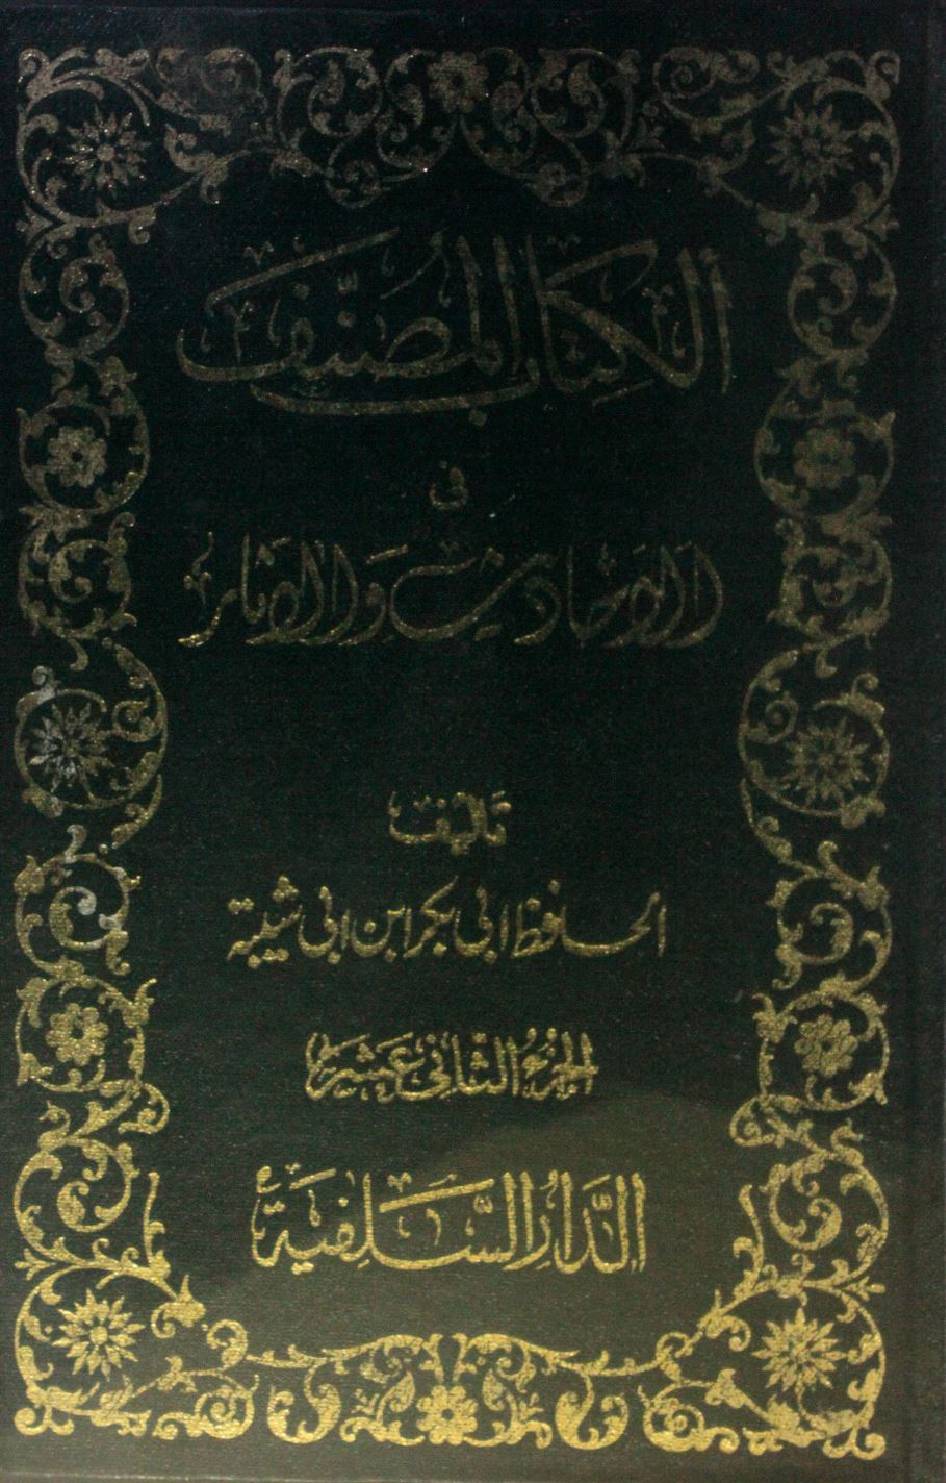 الكِتَابُ المُصَنَّف
في
الأَحَادِيثِ وَالآثَار
تأليف
الحافظ ابى بكر ابن ابى شيبة
الجزءُ الثَّانى عَشَر
الدَّارُ السَّلَفِيَة